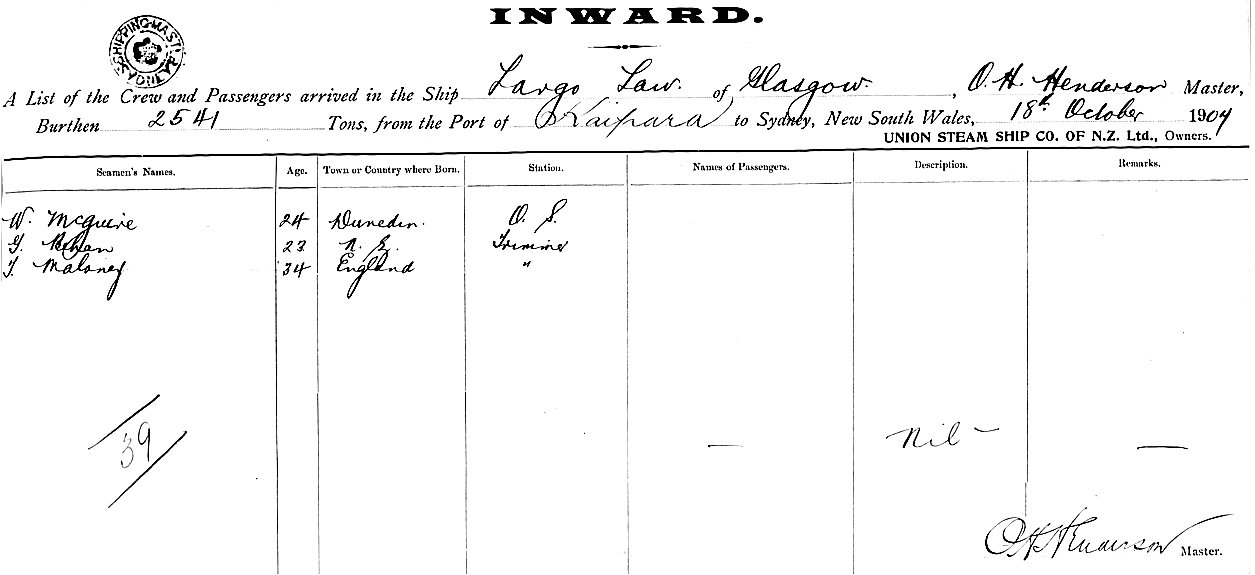 INWARD.
SHIPPING MAST SYDNEY
A List of the Crew and Passengers arrived in the Ship Largo Law. of Glasgow. , O. H. Henderson Master,
Burthen 2541 Tons, from the Port of Kaipara to Sydney, New South Wales, 18th October 1904
UNION STEAM SHIP CO. OF N.Z. Ltd., Owners.
Seamen's Names. Age. Town or Country where Born. Station. Names of Passengers. Description. Remarks.
W. McGuire 24 Dunedin. O. S.
G. 23 N. Z. Trimmer
T. Maloney 34 England "
39 — Nil — —
O H Henderson Master.